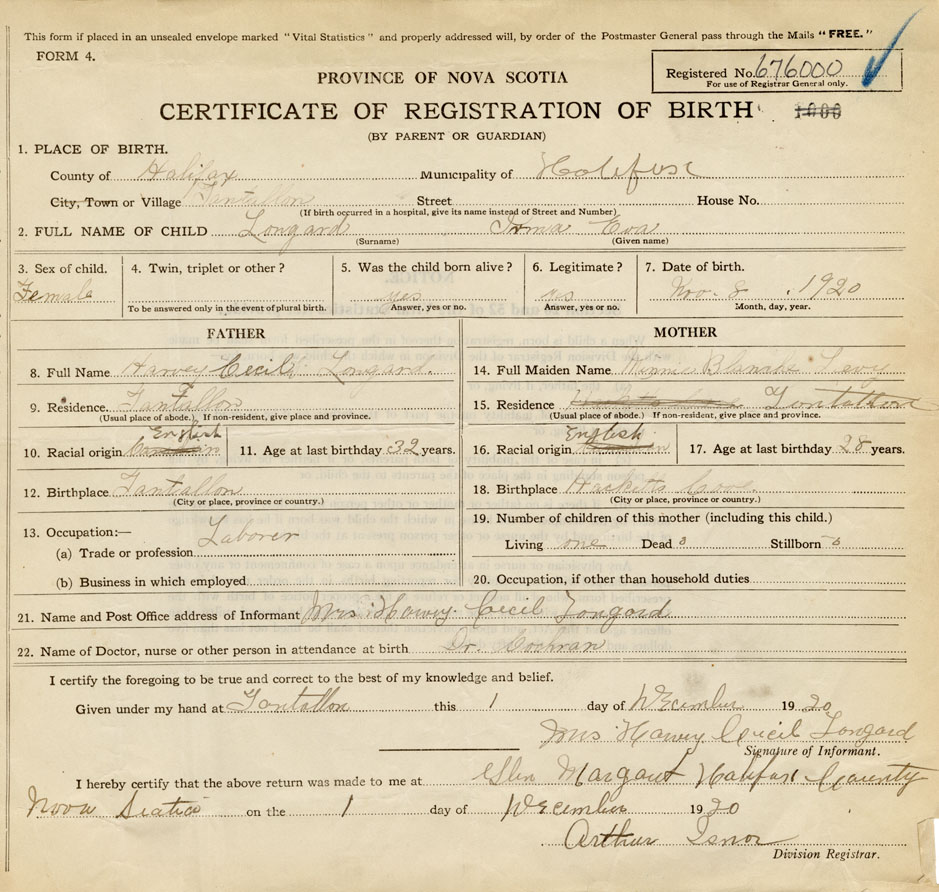 This form if placed in an unsealed envelope marked "Vital Statistics" and properly addressed will, by order of the Postmaster General pass through the Mails "FREE."
FORM 4.
Registered No. 676000
For use of Registrar General only.
PROVINCE OF NOVA SCOTIA
CERTIFICATE OF REGISTRATION OF BIRTH
(BY PARENT OR GUARDIAN)
1. PLACE OF BIRTH.
County of Halifax Municipality of Halifax
City, Town or Village Tantallon Street House No.
(If birth occurred in a hospital, give its name instead of Street and Number)
2. FULL NAME OF CHILD Longard Irma Eva
(Surname) (Given name)
3. Sex of child. 4. Twin, triplet or other? 5. Was the child born alive? 6. Legitimate? 7. Date of birth.
Female yes yes Nov. 8. 1920
To be answered only in the event of plural birth. Answer, yes or no. Answer, yes or no. Month, day, year.
FATHER
8. Full Name Harvey Cecil Longard.
9. Residence. Tantallon
(Usual place of abode.) If non-resident, give place and province.
English
10. Racial origin 11. Age at last birthday 32 years.
12. Birthplace Tantallon
(City or place, province or country.)
13. Occupation:— Laborer
(a) Trade or profession
(b) Business in which employed
MOTHER
14. Full Maiden Name Minnie Blanche
15. Residence Tantallon
(Usual place of abode.) If non-resident, give place and province.
English
16. Racial origin 17. Age at last birthday 28 years.
18. Birthplace Hacketts Cove.
(City or place, province or country.)
19. Number of children of this mother (including this child.)
Living one Dead Stillborn
20. Occupation, if other than household duties
21. Name and Post Office address of Informant Mrs Harvey Cecil Longard
22. Name of Doctor, nurse or other person in attendance at birth Dr. Cochran
I certify the foregoing to be true and correct to the best of my knowledge and belief.
Given under my hand at Tantallon this 1 day of December 1920
Mrs Harvey Cecil Longard
Signature of Informant.
I hereby certify that the above return was made to me at Glen Margaret Halifax County
Nova Scotia on the 1 day of December 1920
Arthur Isnor
Division Registrar.